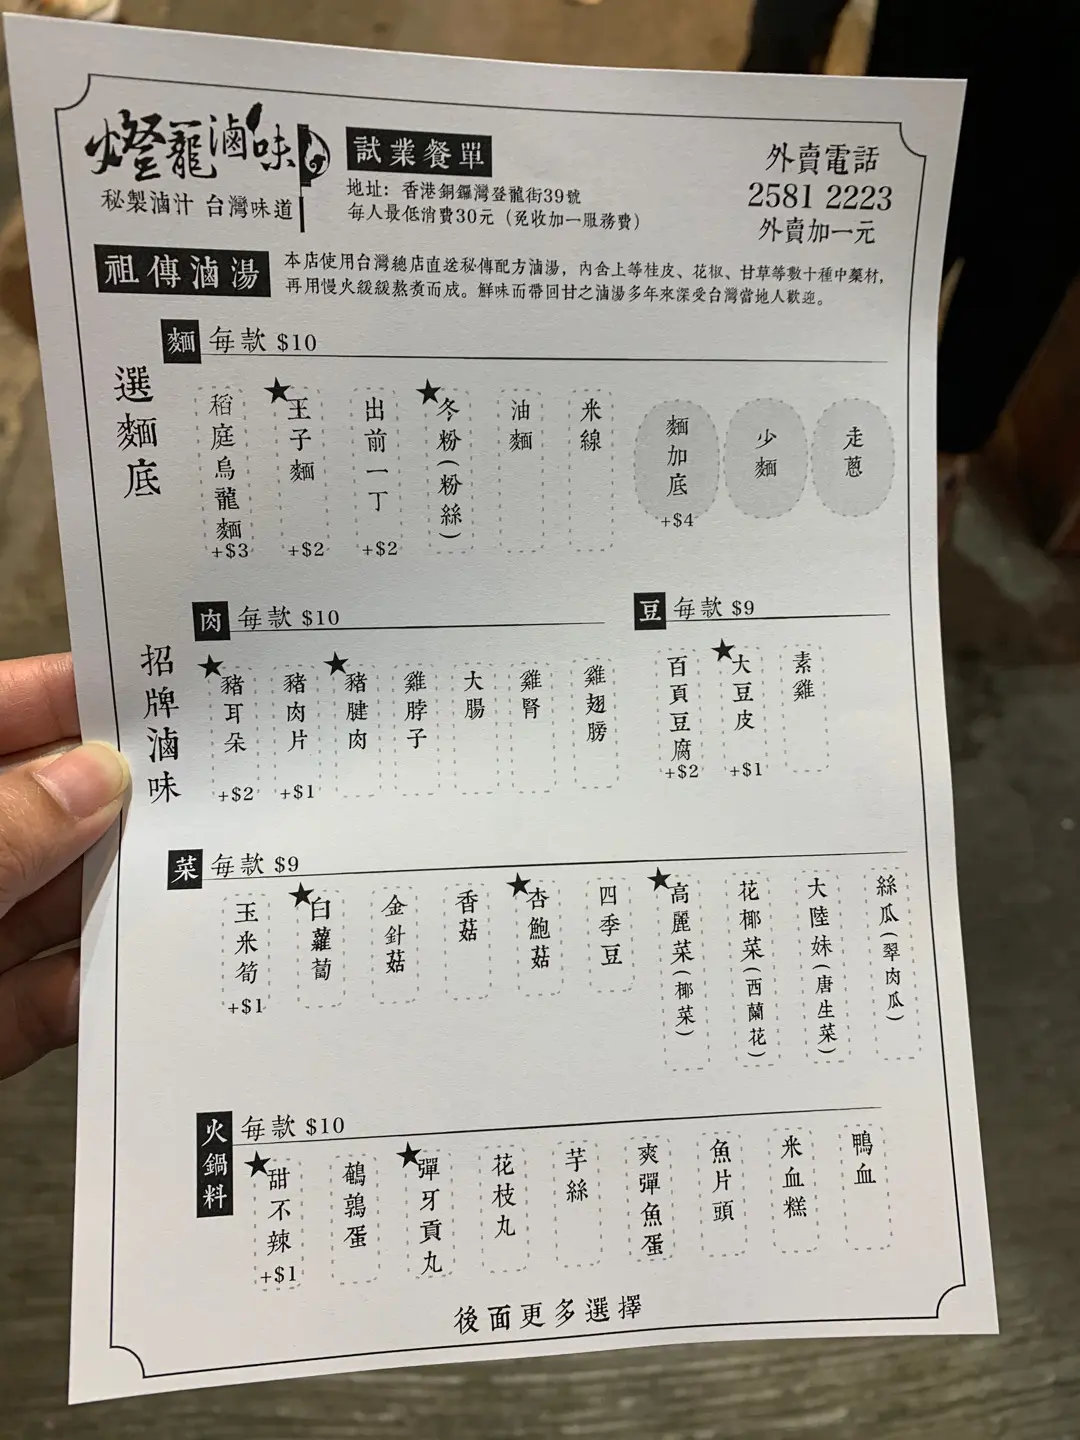 燈籠滷味
秘製滷汁 台灣味道
試業餐單
地址：香港銅鑼灣登龍街39號
每人最低消費30元（免收加一服務費）
外賣電話
2581 2223
外賣加一元
祖傳滷湯
本店使用台灣總店直送秘傳配方滷湯，內含上等桂皮、花椒、甘草等數十種中藥材，
再用慢火緩緩熬煮而成。鮮味而帶回甘之滷湯多年來深受台灣當地人歡迎。
選麵底
麵 每款 $10
稻庭烏龍麵 +$3
★王子麵 +$2
出前一丁 +$2
★冬粉（粉絲）
油麵
米線
麵加底 +$4
少麵
走蔥
招牌滷味
肉 每款 $10
★豬耳朵 +$2
豬肉片 +$1
★豬腱肉
雞脖子
大腸
雞腎
雞翅膀
豆 每款 $9
百頁豆腐 +$2
★大豆皮 +$1
素雞
菜 每款 $9
玉米筍 +$1
★白蘿蔔
金針菇
香菇
★杏鮑菇
四季豆
★高麗菜（椰菜）
花椰菜（西蘭花）
大陸妹（唐生菜）
絲瓜（翠肉瓜）
火鍋料 每款 $10
★甜不辣 +$1
鵪鶉蛋
★彈牙貢丸
花枝丸
芋絲
爽彈魚蛋
魚片頭
米血糕
鴨血
後面更多選擇